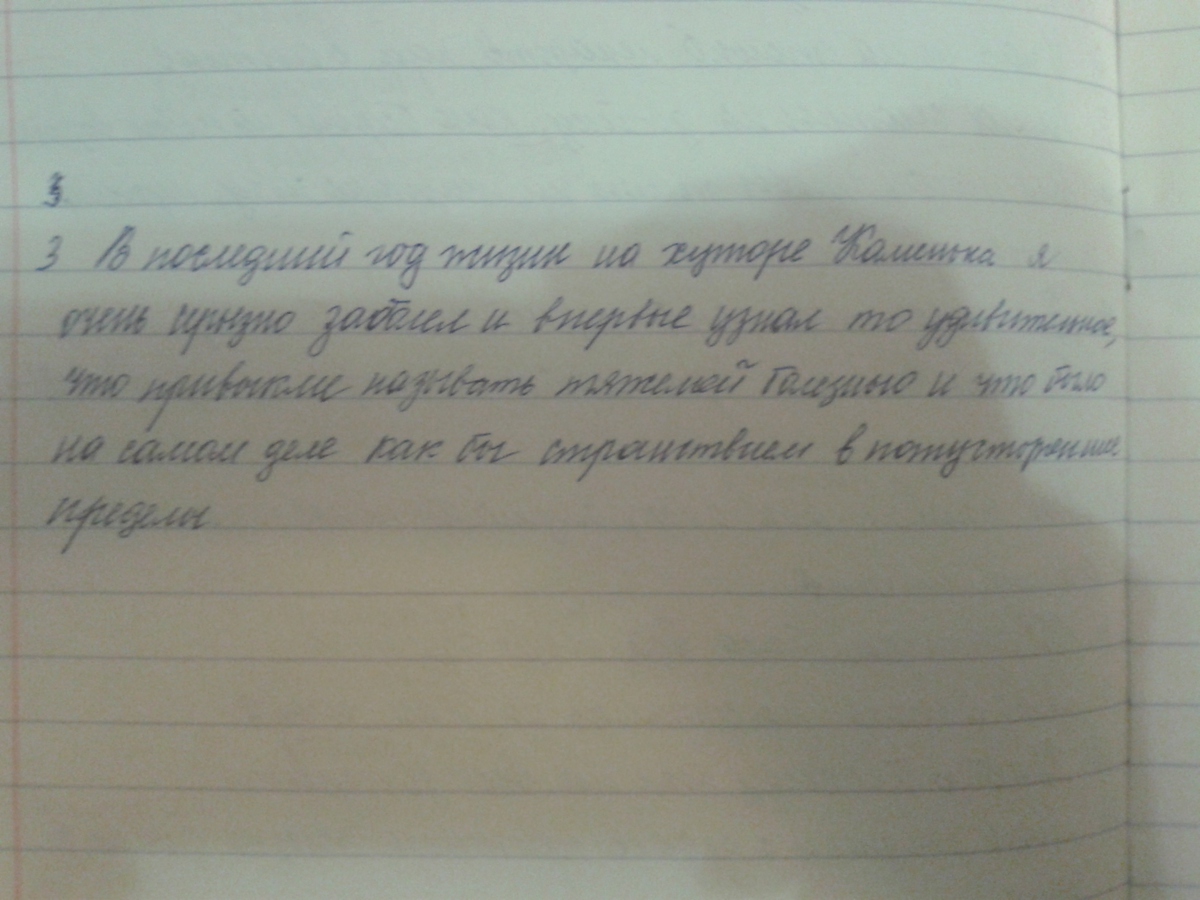 3.
3 В последний год жизни на хуторе Каменька я
очень грызно заболел и впервые узнал то удивительное,
что привыкли называть тяжелой болезнью и что было
на самом деле как бы странствием в потусторонние
пределы